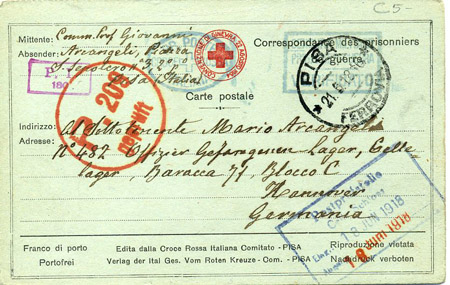 C5-
Mittente: Comm. Prof Giovanni
Absender: Arcangeli, Piazza
Pisa (Italia)
180
CONVENZIONE DI GINEVRA 22 AGOSTO 1864
Correspondance des prisonniers
guerre
PISA
FERROVIA
Carte postale
geprüft
Indirizzo: Al Sottotenente Mario Arcangeli
Adresse: N° 487 Offizier Gefangenen Lager, Celle
lager, Baracca 77, Blocco C
Hannover
Germania
18 JUN 1918
Franco di porto
Portofrei
Edita dalla Croce Rossa Italiana Comitato - PISA
Verlag der Ital Ges. Vom Roten Kreuze - Com. - PISA
Riproduzione vietata
Nachdruck verboten